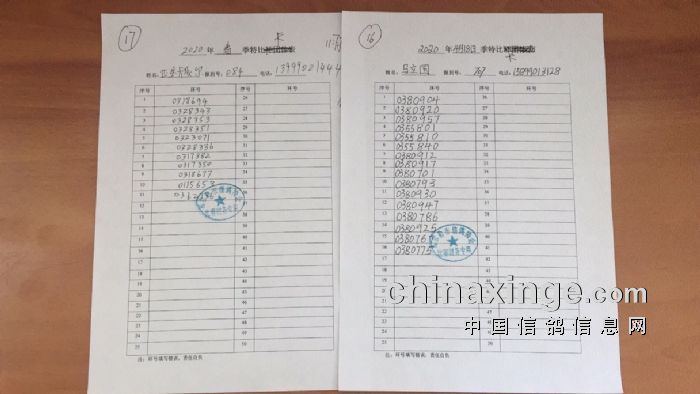 17
卡
2020 年 春 季特比
序号 环号 序号 环号
1 0318694 26
2 0328343 27
3 0328353 28
4 0328351 29
5 0323071 30
6 0328336 31
7 0317382 32
8 0317350 33
9 0318677 34
10 0115653 35
11 36
12 37
13 38
14 39
15 40
16 41
17 42
18 43
19 44
20 45
21 46
22 47
23 48
24 49
25 50
注：环号填写错误，责任自负
16
2020 年 季特比
卡
序号 环号 序号 环号
1 0380904 26
2 0380920 27
3 0380957 28
4 0355801 29
5 0355810 30
6 0355840 31
7 0380912 32
8 0380917 33
9 0380701 34
10 0380793 35
11 0380930 36
12 0380947 37
13 0380786 38
14 0380925 39
15 038076 40
16 0380775 41
17 42
18 43
19 44
20 45
21 46
22 47
23 48
24 49
25 50
注：环号填写错误，责任自负
chinaxinge.com
中国信鸽信息网